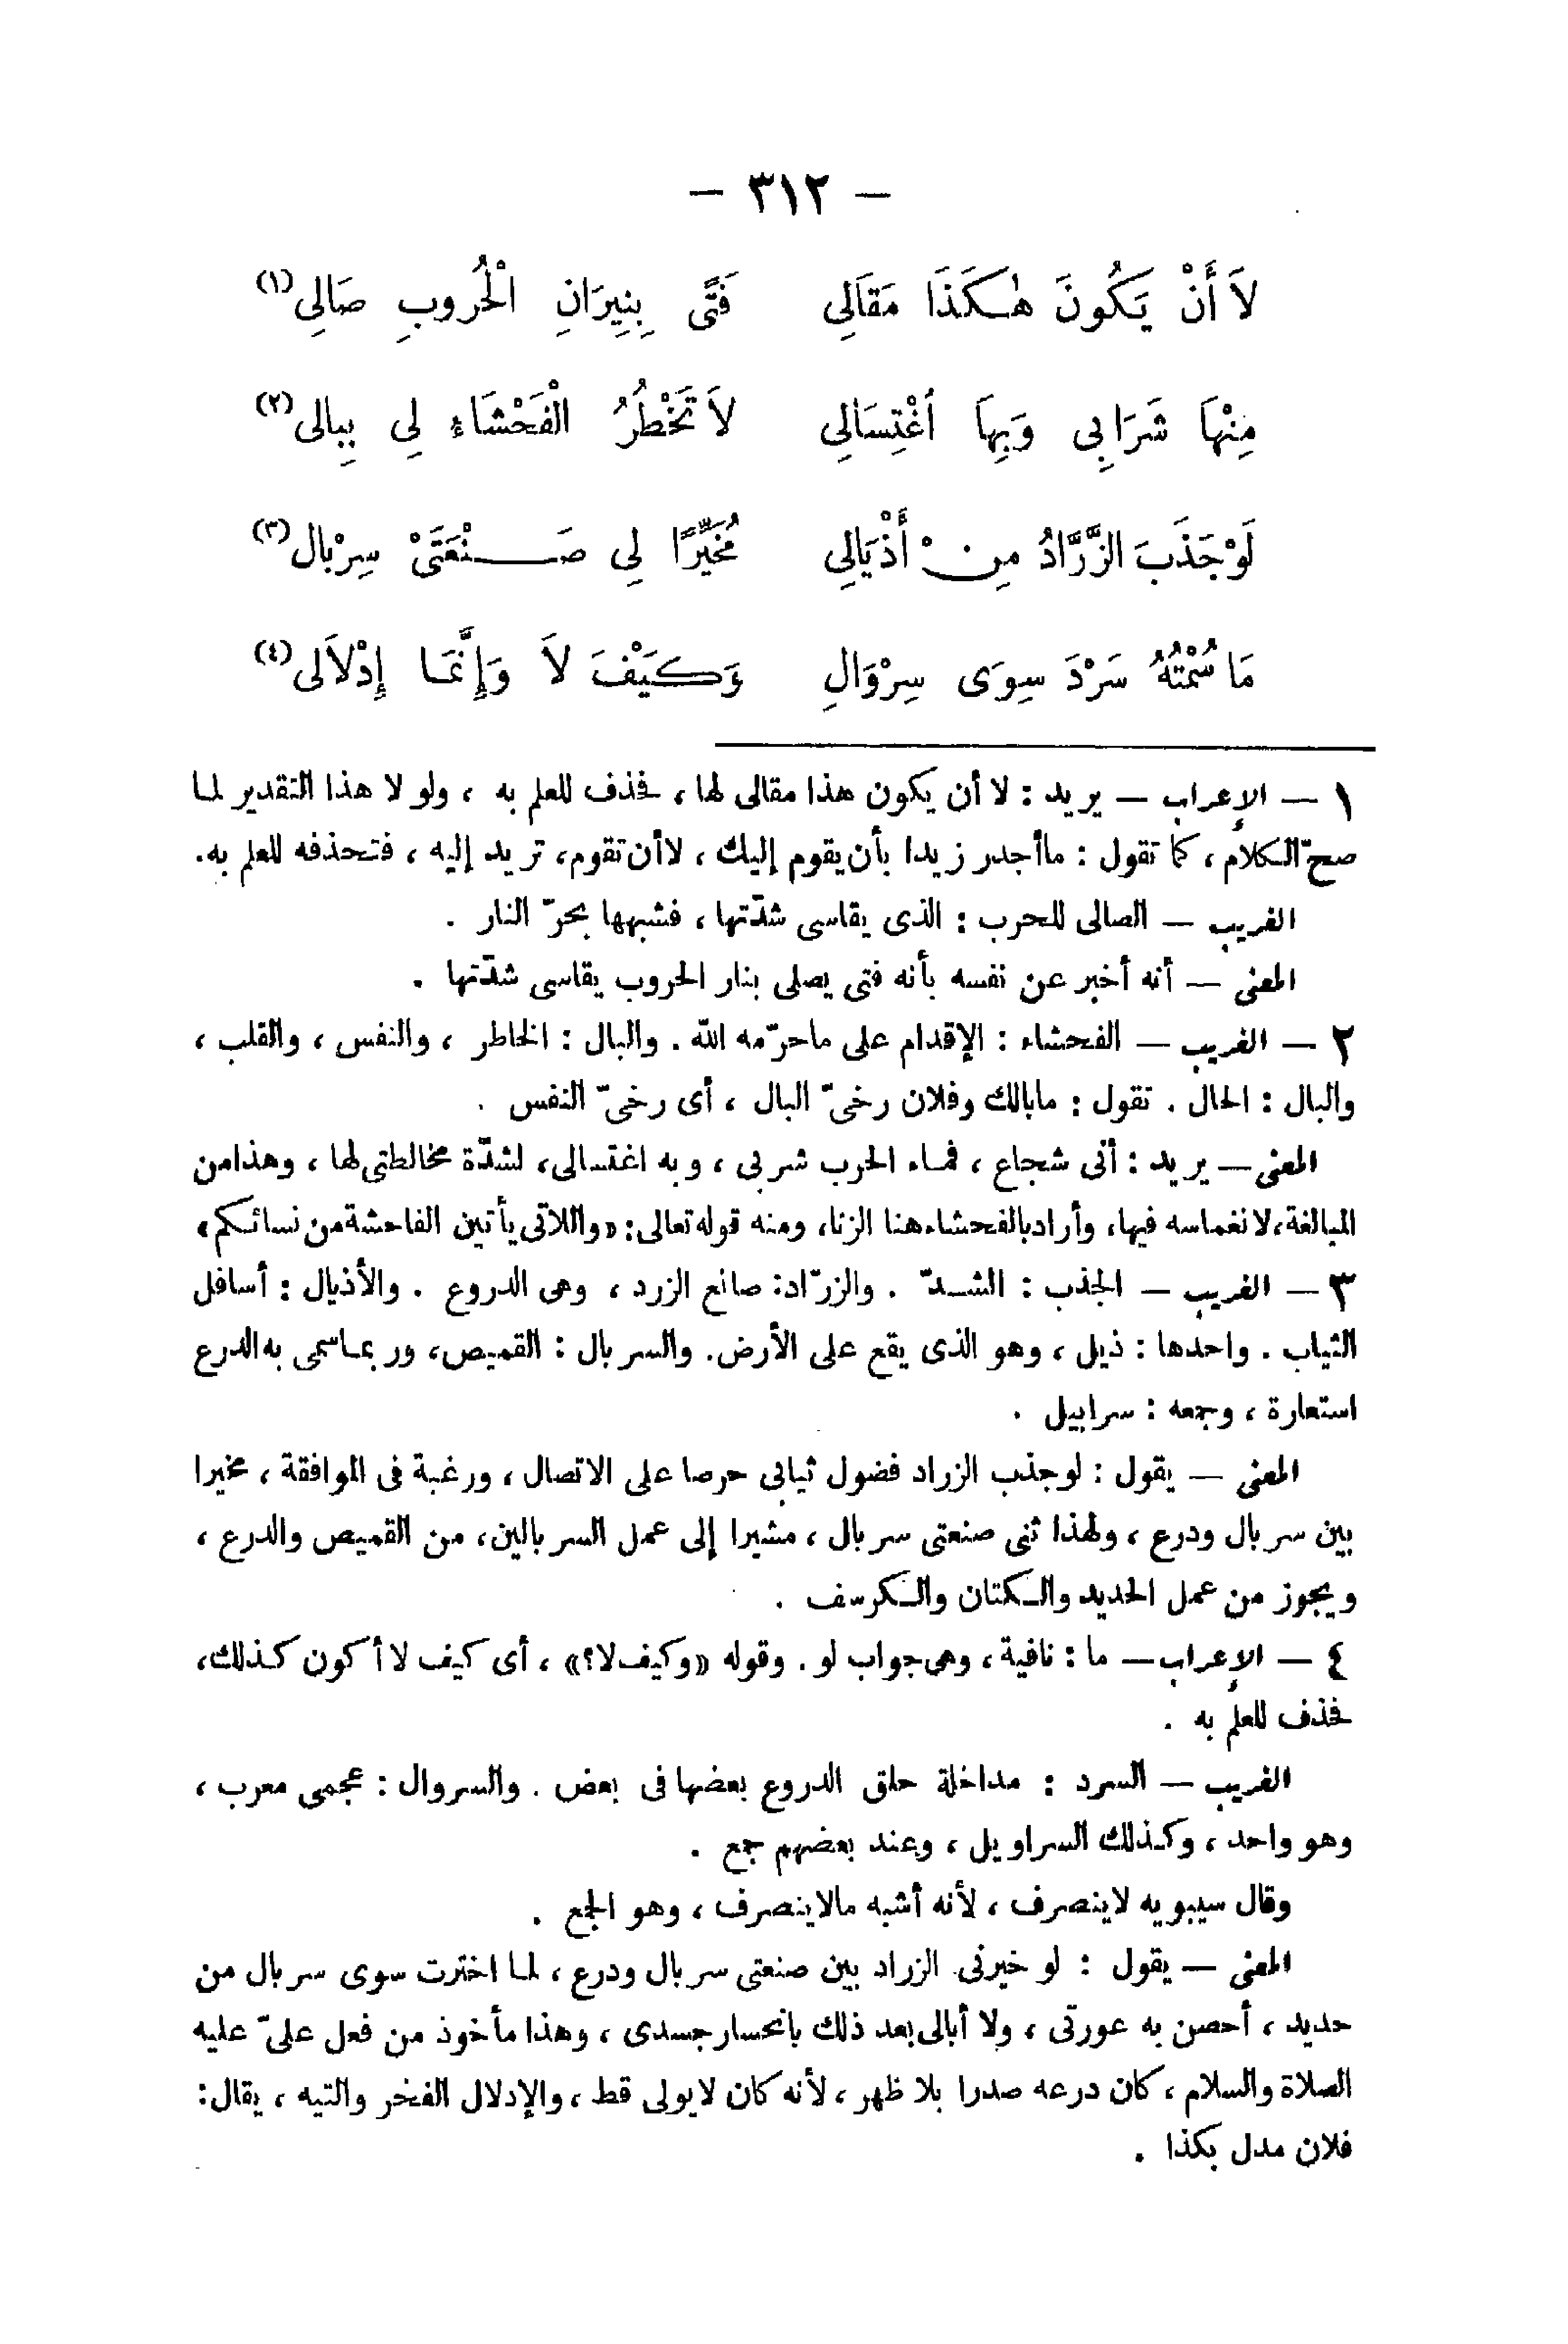 — ٣١٢ —
لاَ أَنْ يَكُونَ هٰكَذَا مَقَالِى فَتًى بِنِيرَانِ الْحُرُوبِ صَالِى (١)
مِنْهَا شَرَابِى وَبِهَا اُغْتِسَالِى لاَ تَخْطُرُ الْفَحْشَاءِ لِى بِبِالى (٢)
لَوْ جَذَبَ الزَّرَّادُ مِنْ أَذْيَالِى مُخَيِّرًا لِى صَنْعَتَىْ سِرْبالِ (٣)
مَا سُمْتُهُ سَرْدَ سِوَى سِرْوَالِ وَكَيْفَ لاَ وَإِنَّمَا إِدْلاَلى (٤)
١ — الإعراب — يريد : لا أن يكون هذا مقالى لها ، فحذف للعلم به ، ولو لا هذا التقدير لما
صحّ الكلام ، كما تقول : ما أجدر زيدا بأن يقوم إليك ، لا أن تقوم، تريد إليه ، فتحذفه للعلم به.
الغريب — الصالى للحرب : الذى يقاسى شدّتها ، فشبهها بحرّ النار .
المعنى — أنه أخبر عن نفسه بأنه فتى يصلى بنار الحروب يقاسى شدّتها .
٢ — الغريب — الفحشاء : الإقدام على ماحرّمه الله . والبال : الخاطر ، والنفس ، والقلب ،
والبال : الحال . تقول : مابالك وفلان رخىّ البال ، أى رخىّ النفس .
المعنى — يريد : أنى شجاع ، فماء الحرب شربى ، وبه اغتسالى، لشدّة مخالطتى لها ، وهذا من
المبالغة، لانغماسه فيها، وأراد بالفحشاء هنا الزنا، ومنه قوله تعالى: «واللاتى يأتين الفاحشة من نسائكم»
٣ — الغريب — الجذب : الشدّ . والزرّاد: صانع الزرد ، وهى الدروع . والأذيال : أسافل
الثياب . واحدها : ذيل ، وهو الذى يقع على الأرض. والسربال : القميص، وربما سمى به الدرع
استعارة ، وجمعه : سرابيل .
المعنى — يقول : لو جذب الزراد فضول ثيابى حرصا على الاتصال ، ورغبة فى الموافقة ، مخيرا
بين سربال ودرع ، ولهذا ثنى صنعتى سربال ، مشيرا إلى عمل السربالين، من القميص والدرع ،
ويجوز من عمل الحديد والكتان والكرسف .
٤ — الإعراب — ما : نافية ، وهى جواب لو . وقوله «وكيف لا؟» ، أى كيف لا أكون كذلك،
فحذف للعلم به .
الغريب — السرد : مداخلة حلق الدروع بعضها فى بعض . والسروال : عجمى معرب ،
وهو واحد ، وكذلك السراويل ، وعند بعضهم جمع .
وقال سيبويه لاينصرف ، لأنه أشبه مالاينصرف ، وهو الجمع .
المعنى — يقول : لو خيرنى الزراد بين صنعتى سربال ودرع ، لما اخترت سوى سربال من
حديد ، أحصن به عورتى ، ولا أبالى بعد ذلك بانحسار جسدى ، وهذا مأخوذ من فعل علىّ عليه
الصلاة والسلام ، كان درعه صدرا بلا ظهر ، لأنه كان لايولى قط ، والإدلال الفخر والتيه ، يقال:
فلان مدل بكذا .